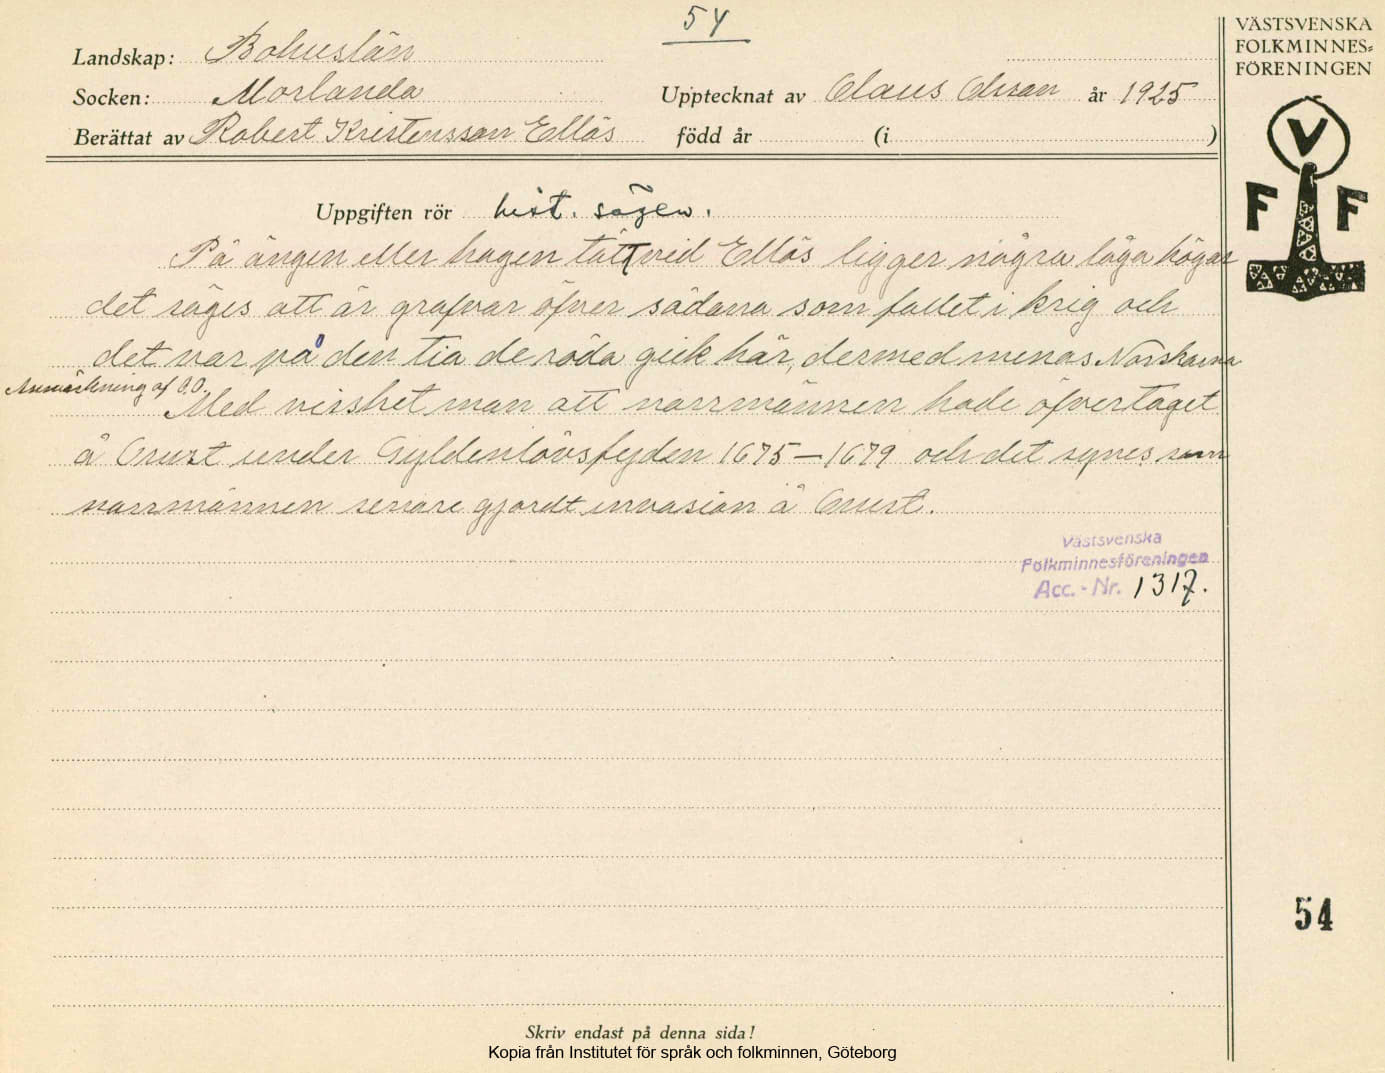 54
VÄSTSVENSKA
FOLKMINNES=
FÖRENINGEN
V
F F
Landskap: Bohuslän
Socken: Morlanda
Upptecknat av Olaus Olsson år 1925
Berättat av Robert Kristensson Ellös född år (i )
Uppgiften rör hist. sägen.
På ängen eller hagen tätt vid Ellös ligger några låga högar
det säges att är grafvar öfver sådana som fallet i krig och
det var på den tia de röda geik här, dermed menas Norskarna
Anmärkning af O.O.
Med visshet man att norrmännen hade öfvertaget
å Orust under Gyldenlövsfejden 1675–1679 och det synes som
norrmännen senare gjordt invasion å Orust.
Västsvenska
Folkminnesföreningen
Acc.-Nr. 1317.
54
Skriv endast på denna sida!
Kopia från Institutet för språk och folkminnen, Göteborg